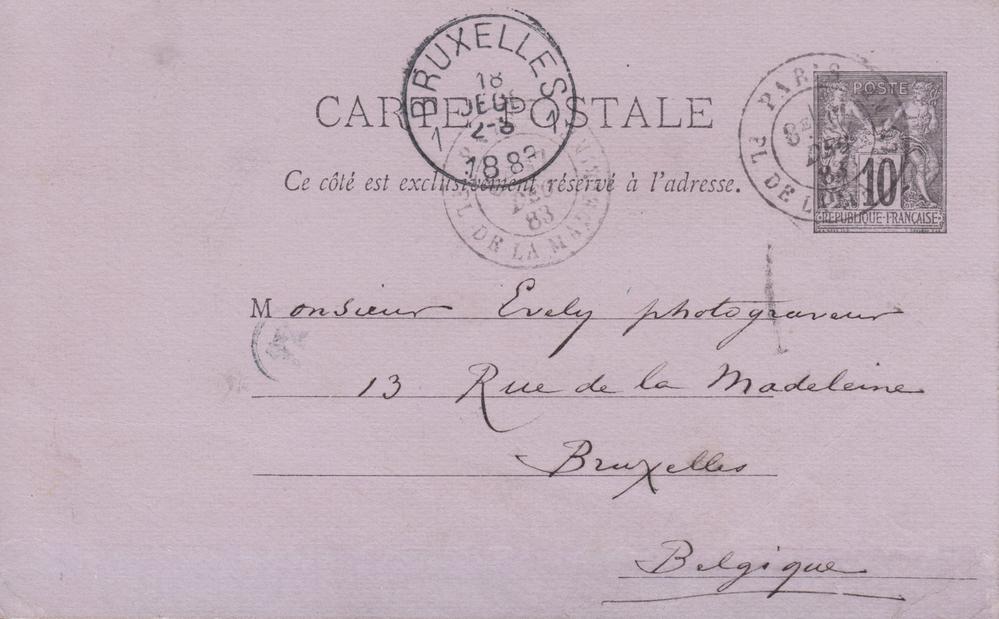 BRUXELLES
1 1
18
DEC
2-3
1883
CARTE POSTALE
Ce côté est exclusivement réservé à l'adresse.
PARIS
8E
DEC
83
PL. DE LA
POSTE
10
REPUBLIQUE-FRANÇAISE
DEC
83
PL. DE LA MADELEINE
Monsieur Evely photograveur
13 Rue de la Madeleine
Bruxelles
Belgique